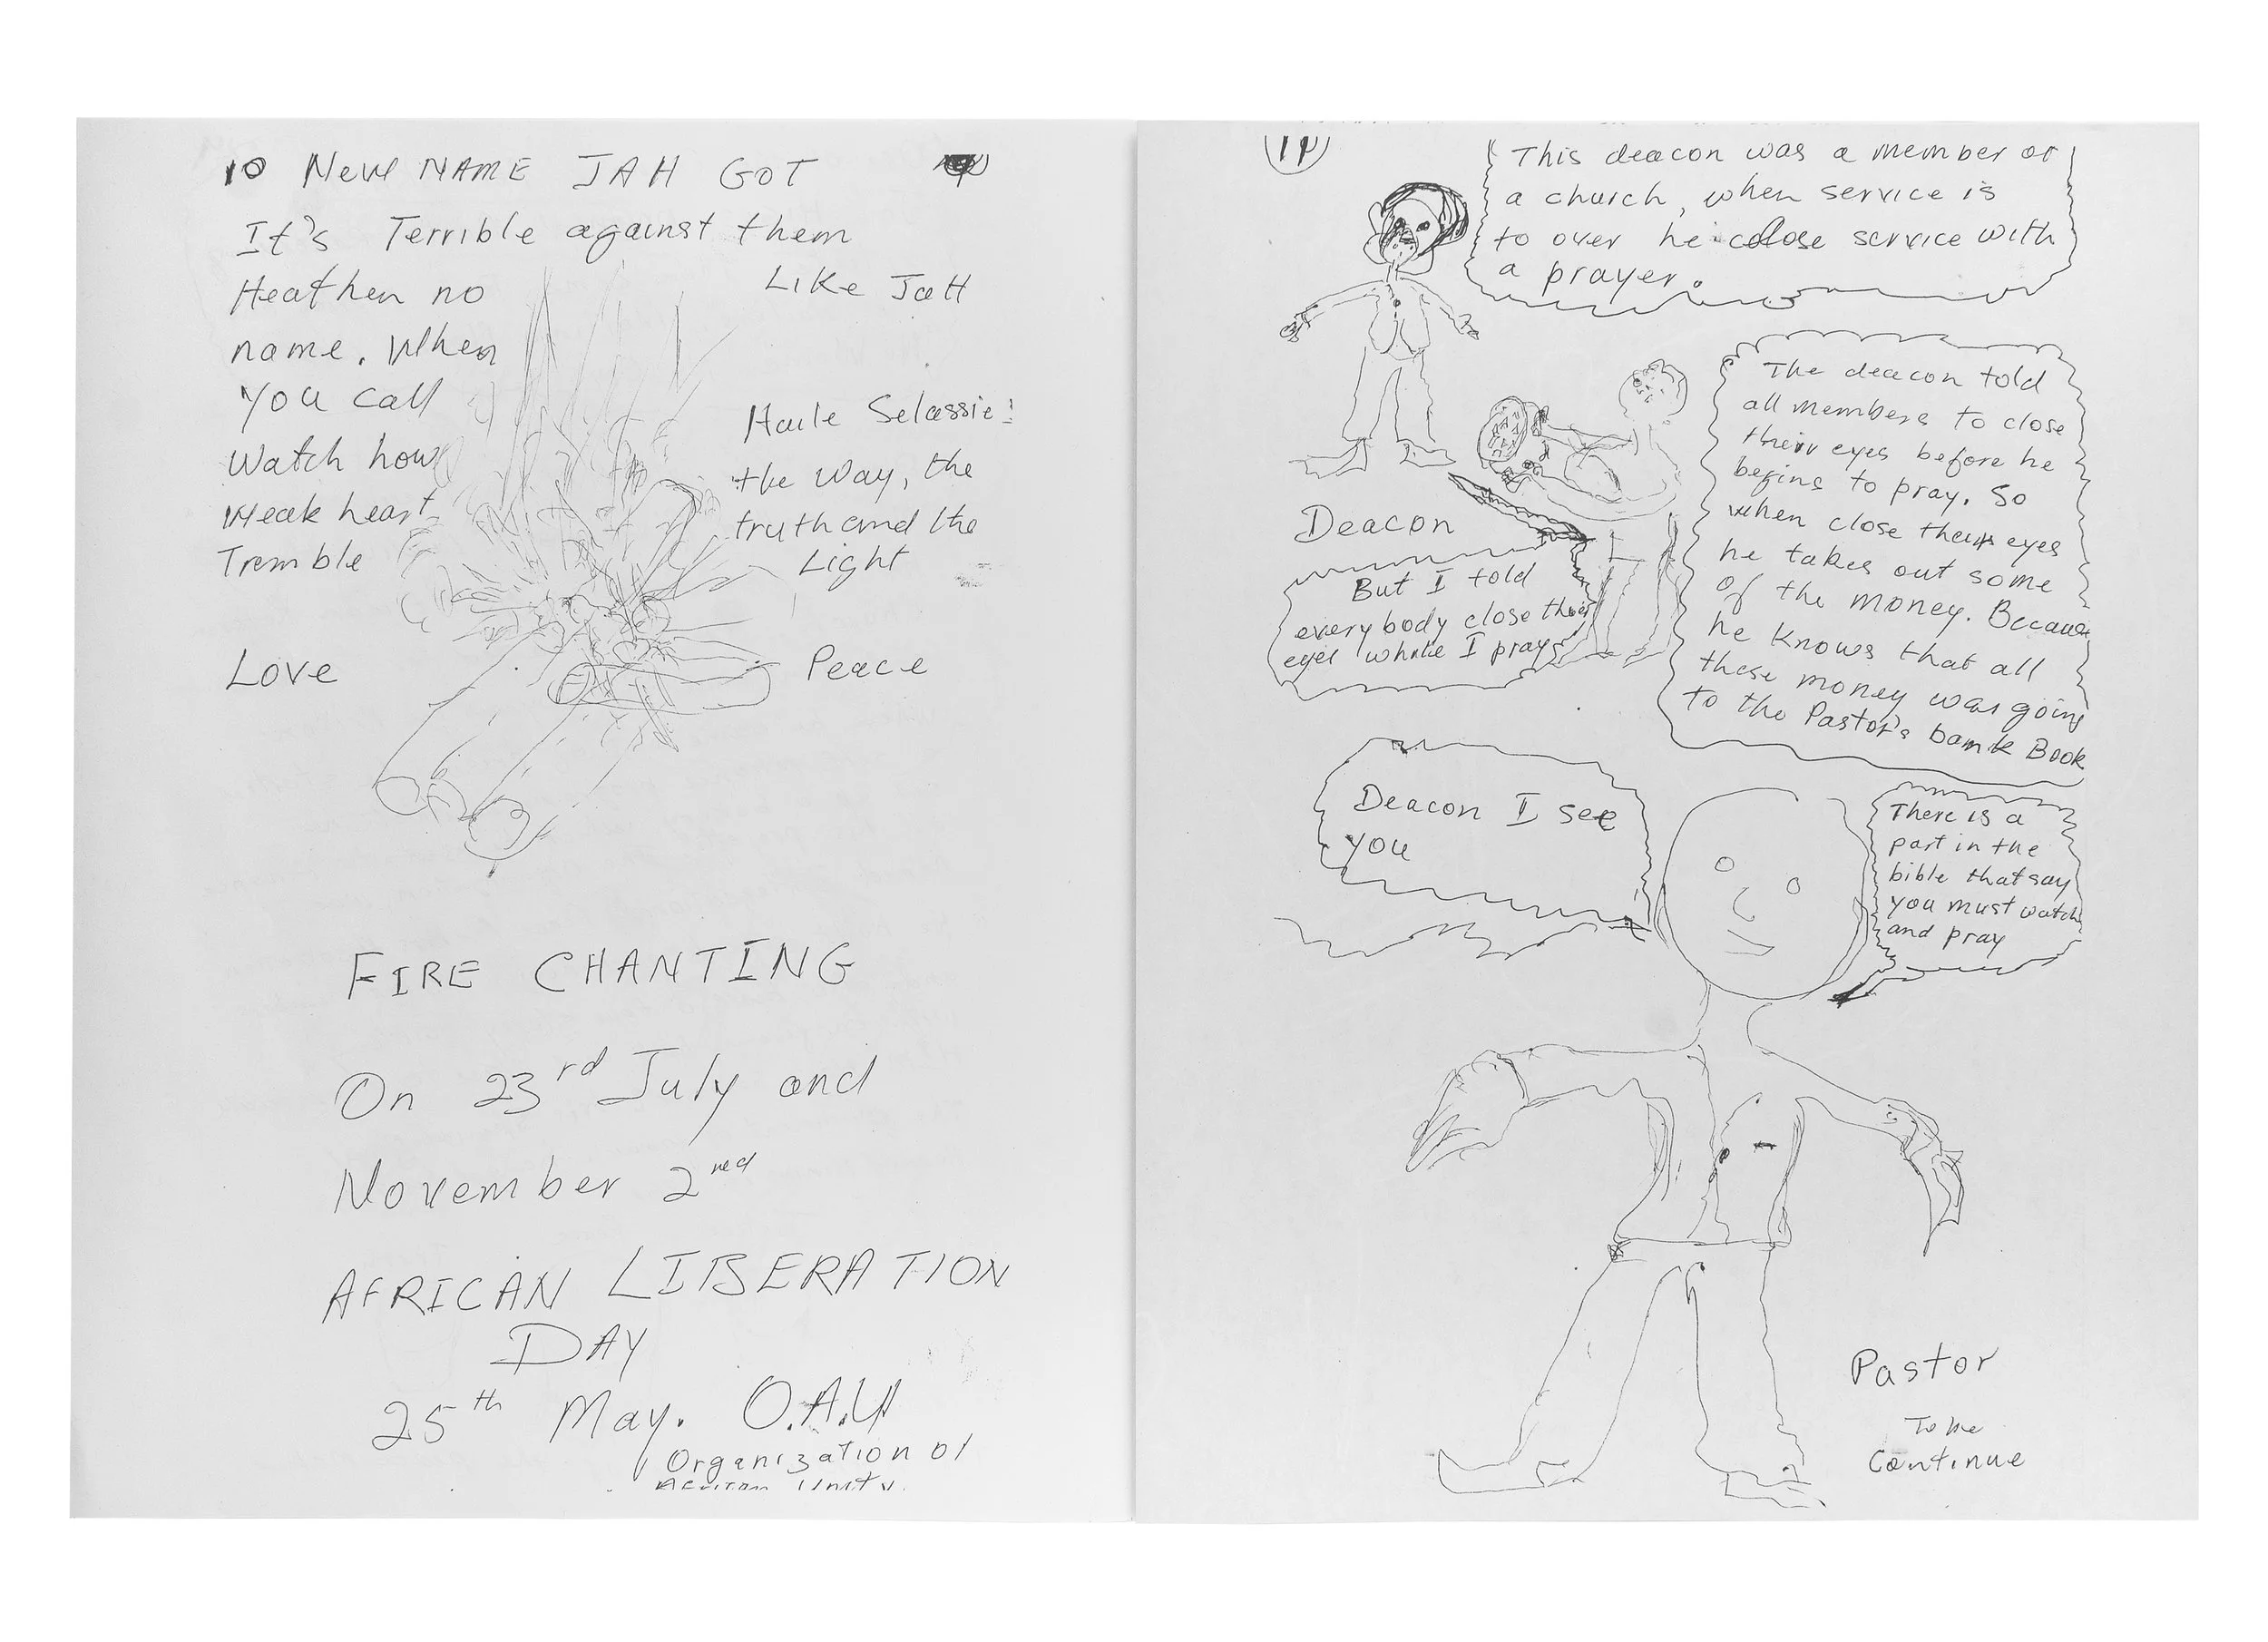 10 New NAME JAH GOT
It's Terrible against them
Heathen no
name. When
you call
Watch how
Weak heart
Tremble
Like JaH
Haile Selassie:
the Way, the
truth and the
Light
Love
Peace
FIRE CHANTING
On 23rd July and
November 2ned
AFRICAN LIBERATION
DAY
25th May. O.A.U
Organization of
African Unity.
This deacon was a member of
a church, when service is
to over he close service with
a prayer.
Deacon
The deacon told
all members to close
their eyes before he
begins to pray. So
when close their eyes
he takes out some
of the money. Because
he knows that all
these money was going
to the Pastor's bank Book
But I told
everybody close their
eyes while I pray
Deacon I see
you
There is a
part in the
bible that say
you must watch
and pray
Pastor
To be
Continue